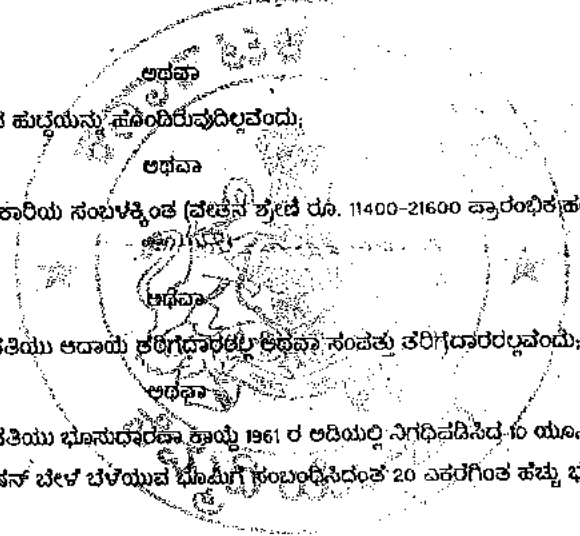 ಅಥವಾ
ಹುದ್ದೆಯನ್ನು ಹೊಂದಿರುವುದಿಲ್ಲವೆಂದು;
ಅಥವಾ
ಕಾರಿಯ ಸಂಬಳಕ್ಕಿಂತ (ವೇತನ ಶ್ರೇಣಿ ರೂ. 11400-21600 ಪ್ರಾರಂಭಿಕ
ಅಥವಾ
ಆದಾಯ ತೆರಿಗೆದಾರರಲ್ಲ ಅಥವಾ ಸಂಪತ್ತು ತೆರಿಗೆದಾರರಲ್ಲವೆಂದು;
ಅಥವಾ
ಭೂಸುಧಾರಣಾ ಕಾಯ್ದೆ 1961 ರ ಅಡಿಯಲ್ಲಿ ನಿಗಧಿಪಡಿಸಿದ 10
ಬೆಳೆ ಬೆಳೆಯುವ ಭೂಮಿಗೆ ಸಂಬಂಧಿಸಿದಂತೆ 20 ಎಕರೆಗಿಂತ ಹೆಚ್ಚು